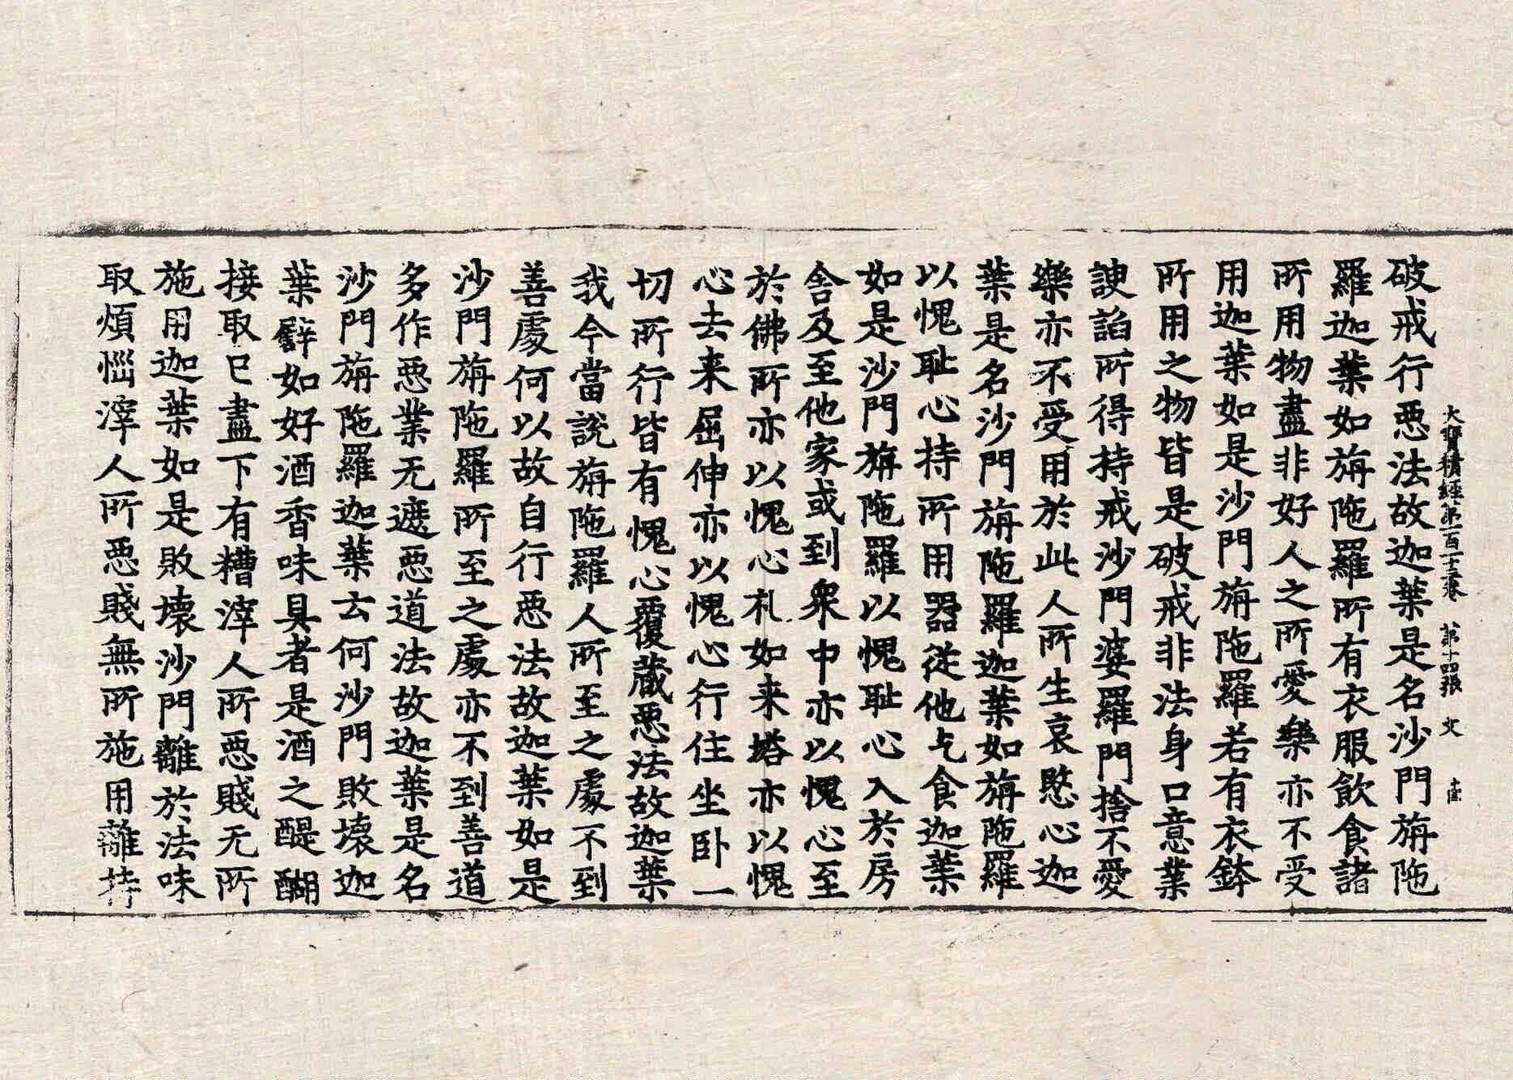 大寶積經第一百一十三卷 第十四張 文
破戒行惡法故迦葉是名沙門旃陁
羅迦葉如旃陁羅所有衣服飲食諸
所用物盡非好人之所愛樂亦不受
用迦葉如是沙門旃陁羅若有衣鉢
所用之物皆是破戒非法身口意業
諛諂所得持戒沙門婆羅門捨不愛
樂亦不受用於此人所生哀愍心迦
葉是名沙門旃陁羅迦葉如旃陁羅
以愧恥心持所用器從他乞食迦葉
如是沙門旃陁羅以愧恥心入於房
舍及至他家或到衆中亦以愧心至
於佛所亦以愧心礼如来塔亦以愧
心去来屈伸亦以愧心行住坐卧一
切所行皆有愧心覆藏惡法故迦葉
我今當說旃陁羅人所至之處不到
善處何以故自行惡法故迦葉如是
沙門旃陁羅所至之處亦不到善道
多作惡業无遮惡道法故迦葉是名
沙門旃陁羅迦葉云何沙門敗壞迦
葉譬如好酒香味具者是酒之醍醐
接取已盡下有糟滓人所惡賤无所
施用迦葉如是敗壞沙門離於法味
取煩惱滓人所惡賤無所施用離持